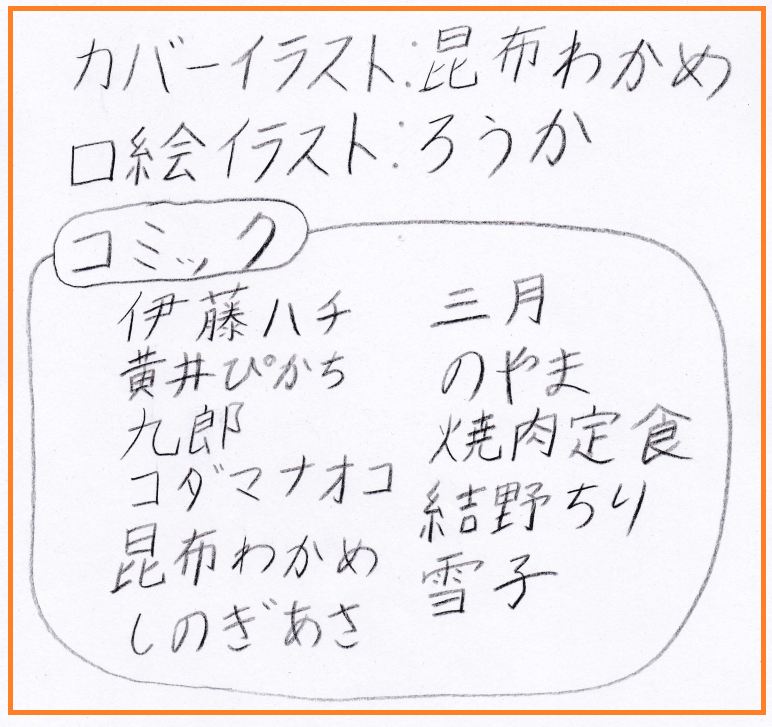 カバーイラスト:昆布わかめ
口絵イラスト:ろうか
コミック
伊藤ハチ
黄井ぴかち
九郎
コダマナオコ
昆布わかめ
しのぎあさ
三月
のやま
焼肉定食
結野ちり
雪子